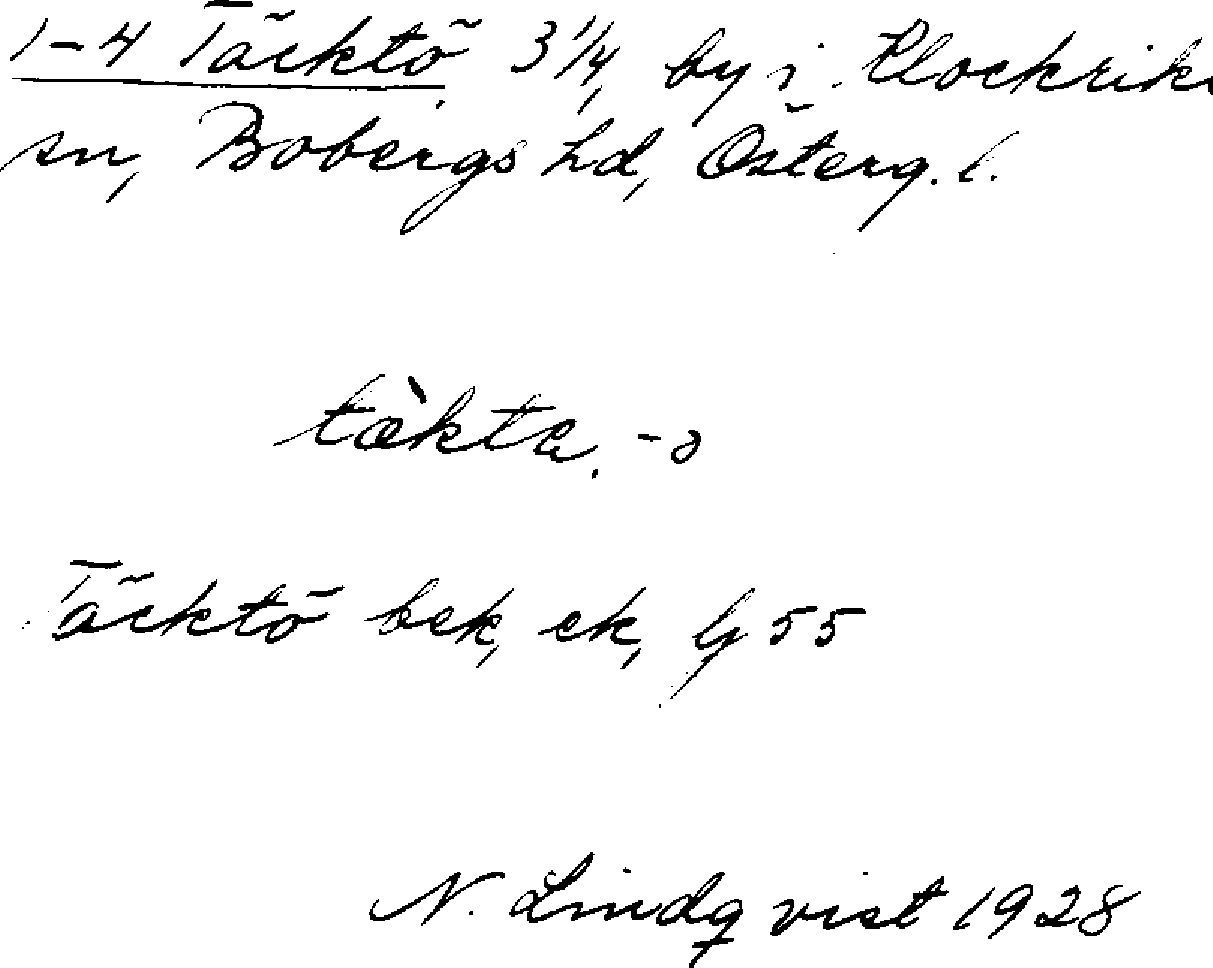 1-4 Täcktö 3 1/4, by i Klockrike
sn, Bobergs hd, Österg. l.
tækta, -ə
Täcktö bek, ek, Lg 55
N. Lindqvist 1928